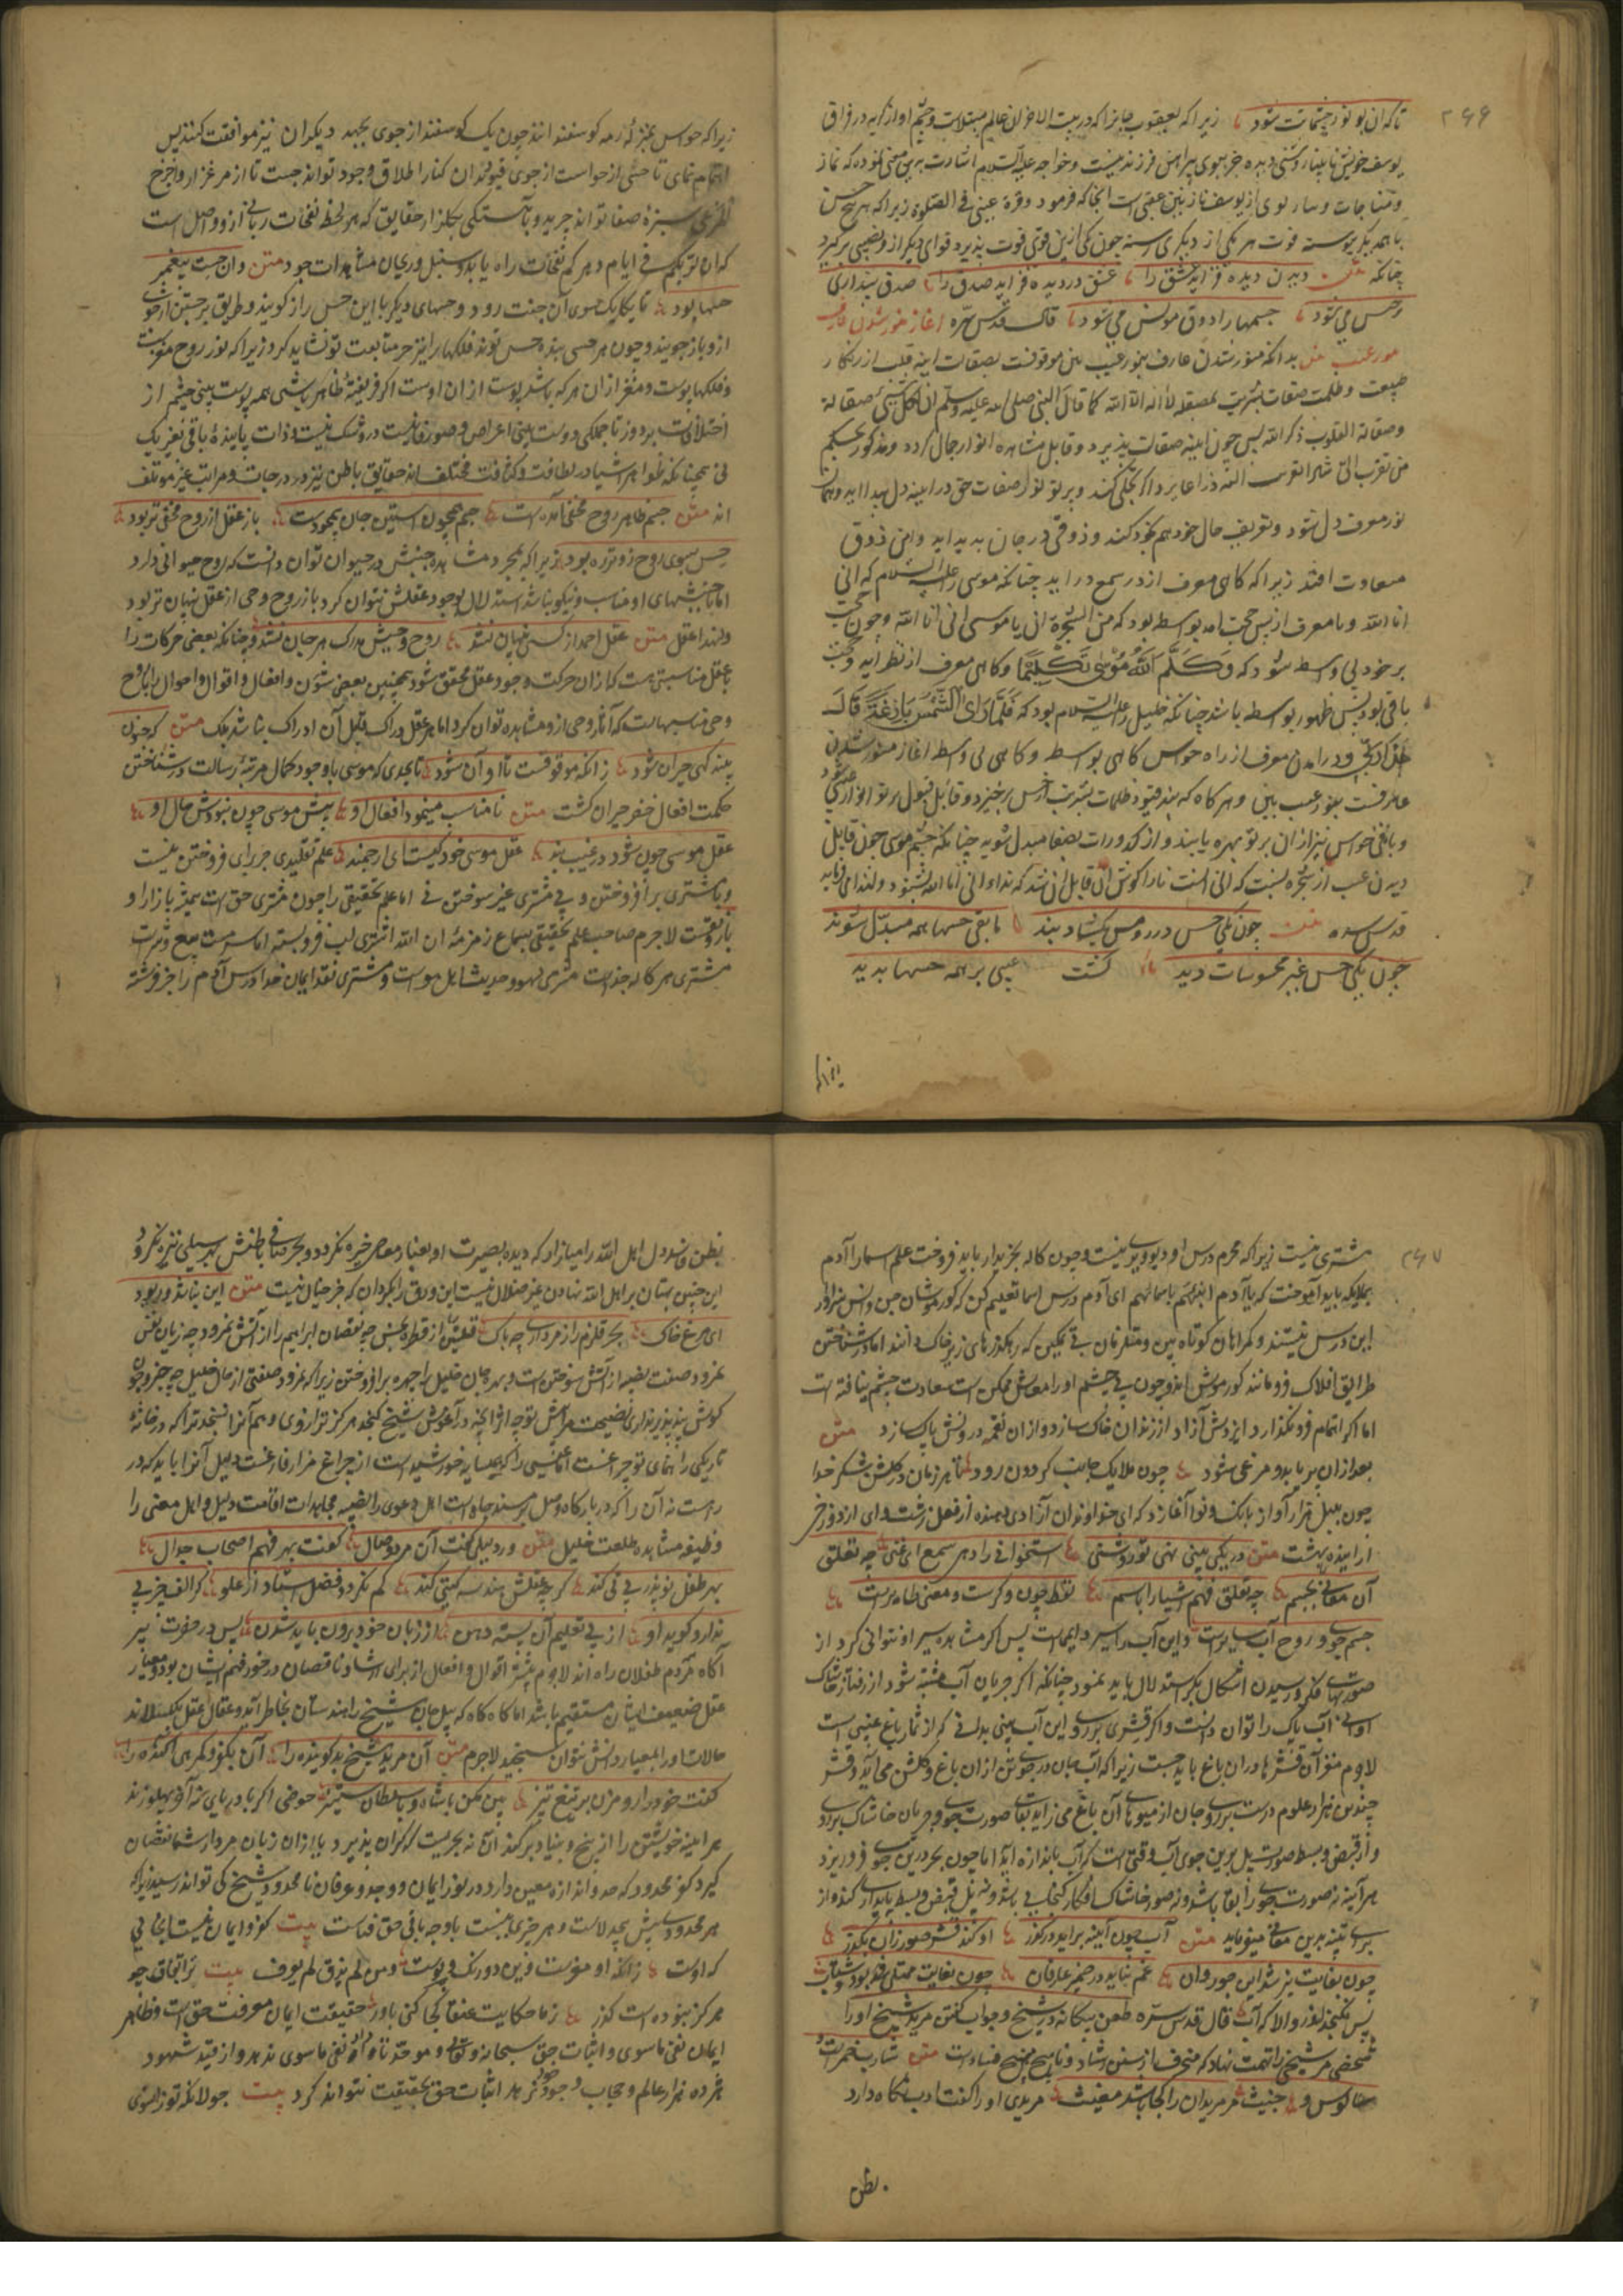 ۲۶۶
تا که آن بو نور چشمانت شود زیرا که یعقوب جانرا که در بیت الاحزان عالم مبتلاست و چشم او از گریه در فراق
یوسف خویش نابینا روشنی دیده جز ببوی پیراهن فرزند نیست و خواجه علیه السلام اشارت به این معنی نموده که نماز
و مناجات وسار بوی از یوسف نازنین عقبی است انجا که فرمود و قرة عینی فی الصلوة زیرا که هر پنج حس
با همدیگر پیوسته قوت هر یکی از دیگری رسته چون یکی ازین قوی قوت پذیرد قوای دیگر از و نصیبی برگیرد
چنانکه متن دیدن دیده فزاید عشق را عشق در دیده فزاید صدق را صدق بیداری
هر حس می شود حسها را ذوق مونس می شود قال قدس سره اغاز منور شدن عارف
بنور غیب بین بدانکه منور شدن عارف بنور غیب بین موقوفست بصقالت اینه قلب از زنکار
طبیعت و ظلمت صفات بشریت بمصقله لا اله الا الله کما قال النبی صلی الله علیه وسلم ان لکل شیئ صقالة
وصقالة القلوب ذکر الله پس چون اینه صقالت پذیرد و قابل مشاهده انوار جمال کردد ومذکور بحکم
من تقرب الی شبرا تقربت الیه ذراعا برد اکر تجلی کند و پرتو نور صفات حق در اینه دل پیدا اید وهمان
نور معرف دل شود و تعریف حال خود هم بخود کند و ذوقی در جان پدید اید واین ذوق
متفاوت افتد زیرا که کاهی معرف از در سمع در اید چنانکه موسی را علیه السلام که انی
انا الله و با معرف از پس حجب امد بواسطه بود که من الشجرة ان یا موسی انی انا الله و چون حجب
بر خود بی واسطه شود که وَکَلَّمَ اللّٰهُ مُوسٰی تَکْلِیمًا و کاهی معرف از نظر اید و حجب
باقی بود پس ظهور بواسطه باشد چنانکه خلیل را علیه السلام بود که فَلَمَّا رَأَی الشَّمْسَ بَازِغَةً قَالَ
هٰذَا رَبِّی و در امدن معرف از راه حواس کاهی بواسطه و کاهی بی واسطه اغاز منور شدن
عارفست بنور غیب بین و هرکاه که بند قیود ظلمات بشریت از حس برخیزد و قابل قبول پرتو انوار غیبی شود
و باقی حواس نیز ازان پرتو بهره یابند و از کدورات بصفا مبدل شوند چنانکه چشم موسی چون قابل
دیدن غیب از شجره نسبت که انی انست نارا کوش او قابل ان شد که نداء انی انا الله بشنود ولهذا می فرماید
قدس سره متن چون یکی حس در روش بکشاد بند ما بقی حسها همه مبدل شوند
چون یکی حس غیر محسوسات دید کشت غیبی بر همه حسها پدید
زیرا که
زیرا که حواس بمنزلهٔ رمه کوسفند اند چون یک کوسفند از جوی بجهد دیکران نیز موافقت کنند پس
اهتمام نمای تا حسی از حواست از جوی قیود بدان کنار اطلاق وجود تواند جست تا از مرغزار واخرج
المرعی سبزهٔ صفا تواند چرید و بآهستکی بکلزار حقایق که هر لحظه نفحات ربانی ازو واصل است
که ان لربکم فی ایام دهرکم نفحات راه یابد و سنبل وریحان مشاهدات جود متن وان حست پیغمبر
حسها بود تا یکایک سوی آن جنت رود و حسهای دیکر با این حس راز کویند وطریق برجستن از جوی
ازو باز جویند و چون هر حسی بنده حس تو شد فلکها را نیز جز متابعت تو نشاید کرد زیرا که نور روح مغزست
و فلکها پوست و مغز ازان هرکه باشد پوست ازان اوست اکر فریفتهٔ ظاهر باشی همه پوست بینی چشم از
اختلاف بردوز تا جملکی دوست بینی اعراض و صور فانیست در و شک نیست و ذات پاینده باقی بغیر یک
نی همچنانکه ظواهر اشیا در لطافت و کثافت مختلف اند حقایق باطن نیز در درجات و مراتب غیر موتلف
اند متن جسم ظاهر روح مخفی آمده است جسم همچون آستین جان همچو دست باز عقل از روح مخفی تر بود
حس بسوی روح زوتر ره برد زیرا که بمجرد مشاهده جنبش در حیوان توان دانست که روح حیوانی دارد
اما تا جنبشهای او مناسب و نیکو نباشد استدلال بوجود عقلش نتوان کرد باز روح وحی از عقل نهان تر بود
ولهذا عقل متن عقل احمد از کسی پنهان نشد روح وحیش مدرک هر جان نشد و چنانکه بعضی حرکات را
با عقل مناسبتی هست که ازان حرکت وجود عقل محقق شود همچنین بعضی شؤن و افعال و اقوال و احوال را با روح
وحی مناسبهاست که آثار وحی ازو مشاهده توان کرد اما هر عقل دراک قابل آن ادراک نباشد بلک متن که جنون
بیند کهی حیران شود زانکه موقوفست تا او آن شود تا بحدی که موسی با وجود کمال مرتبهٔ رسالت در شناختن
حکمت افعال خضر حیران کشت متن نامناسب مینمود افعال او پیش موسی چون نبودش حال او
عقل موسی چون شود در غیب بند عقل موسی خود کیست ای ارجمند علم تقلیدی جز برای فروختن نیست
و با مشتری برافروختن و بی مشتری غیر سوختن نی اما علم تحقیقی را چون مشتری حق است همیشه بازار او
با رونقست لاجرم صاحب علم تحقیقی بسماع زمزمهٔ ان الله اشتری لب فروبسته اما سرمست بیع و شراست
مشتری هر کاله جداست مشتری لهو و حدیث اهل هواست و مشتری نقد ایمان خدا درس آدم را جز فرشته
۲۶۷
مشتری نیست زیرا که محرم درس او دیو و پری نیست و چون کاله بخریدار باید فروخت علم اسما را آدم
بملایکه باید آموخت که یا آدم انبئهم باسمائهم ای آدم درس اسما تعلیم کن که کورموشان جن وانس سزاوار
این درس نیستند و کمراهان کوتاه بین و متلونان بی تمکین که رهکذرهای زیر خاک دانند اما در شناختن
طرایق افلاک فرو مانند کورموش اند و چون بی چشم او را معاش ممکن است سعادت چشم نیافته است
اما اکر اتمام فرو نکذارد ایزدش آزاد از زندان خاک سازد و ازان نقمه درونش پاک سازد متن
بعد ازان پر یابد و مرغی شود چون ملایک جانب کردون رود تا هر زمان در کلشن شکر خدا
چون بلبل هزار آواز بانک و نوا آغازد که ای خداوند آن آزادی دهنده از فعل زشت و ای از دوزخ
آراینده بهشت متن در یکی پیهی نهی تو روشنی استخوانی را دهی سمع ای غنی چه تعلق
آن معانی بجسم چه تعلق فهم اشیا را باسم لفظ چون وکرست و معنی طایرست
جسم جوی و روح آب سایرست و این آب را سیر دایمی است پس اکر مشاهده سیر او نتوانی کرد از
صورتهای فکر و رسیدن اشکال بکر استدلال باید نمود چنانکه اکر جریان آب مشتبه شود از رفتار خاشاک
او بی آب پاک را توان دانست و اکر قشری بر روی این آب بینی بدانکه از ثمار باغ غیبی است
لاجرم مغز آن قشرها در آن باغ باید جست زیرا که آب جان در جوی تن ازان باغ و کلشن می آید و قشر
چندین هزار علوم درست بر روی جان از میوهای آن باغ می زاید بقای صورت جوی و جریان خاشاک بر روی
و از قبض و بسط صورت پل برین جوی آب وقتی است که آب باندازه آید اما چون بحر درین جوی فرو ریزد
هر آینه نه صورت جوی را بقا باشد و نه صور خاشاک افکار کنجایی یابد و نه پل قبض و بسط پایداری کند و از
برای تنبیه برین معانی میفرماید متن آب چون آینه براید در کوز او کند قشر صور زان بکذر
چون بغایت تیز شد این جو روان غم نپاید در ضمیر عارفان چون بغایت ممتلی بد و شتاب
پس نکنجید اندرو الا که آب قال قدس سره طعن بیکانه در شیخ و جواب کفتن مرید شیخ او را
شخصی مر شیخی را تهمت نهاد که منحرف از سنن رشاد و ناهج منهج فساد است متن شارب خمر است و
سالوس و خبیث مر مریدان را کجا باشد مغیث مریدی او را کفت ادب نکاه دارد
بظن
بظن فاسد دل اهل الله را میازار که دیده بصیرت او بغبار معاصی خیره نکردد و بحر صافی باطنش بهر سیلی تیره نکردد
این چنین بهتان بر اهل الله نهادن غیر ضلال نیست این ورق را بکردان که جز خیال نیست متن این نباشد ور بود
ای مرغ خاک بحر قلزم را ز مرداری چه باک قلتین از قطره نجس چه نقصان ابراهیم را از آتش نمرود چه زیان نفس
نمرود صفت نصیبه از آتش سوختن است و بهره جان خلیل را چهره برافروختن زیرا که نمرود صفتی از حال خلیل چه خبر و چون
کوش پند پذیر نداری نصیحت مرا بتو چه اثر آنچه در آغوش شیخ کنجد هرکز ترازوی وهم آنرا نسنجد ترا که در خانهٔ
تاریکی راهنمای تو چراغست اما عیسی را که همسایه خورشید است از چراغ هزار فراغست دلیل آنرا باید که در
راست نه آن را که در بارکاه وصل بر مسند جاه است اهل دعوی را نصیبه مجاهدات اقامت دلیل و اهل معنی را
وظیفه مشاهده طلعت خلیل متن ور دلیلی کفت آن مرد وصال کفت بهر فهم اصحاب جدال
بهر طفل نو پدر تی تی کند کر چه عقلش هندسه کیتی کند کم نکردد فضل استاد از علو کر الف چیزی
ندارد کوید او از پی تعلیم آن بسته دهن از زبان خود برون باید شدن پس در حضرت پیر
آکاه مردم طفلان راه اند لاجرم بیشتر اقوال و افعال از برای ارشاد ناقصان در خور فهم ایشان بود و معیار
عقل ضعیف ایشان مستقیم باشد اما کاه کاه که پیل جان شیخ را هندستان بخاطر آید و عقال عقل بکسلاند
حالات او را بمعیار دانش نتوان سنجید لاجرم متن آن مرید شیخ بد کوینده را آن بکفر و کمرهی آکنده را
کفت خود را تو مزن بر تیغ تیز هین مکن با شاه و با سلطان ستیز حوضی اکر با دریایی پهلو زند
هر اینه خویشتن را از بیخ و بنیاد برکند آن نه بحریست که کران پذیرد یا از آن زبان مردار شما نقصان
کیرد کفر محدود که حد و اندازه معین دارد در نور ایمان و وجد و عرفان نامحدود شیخ کی تواند رسید زیرا که
هر محدود پیش بیحد لاست و هر چیزی نیست با وجه باقی حق فناست بیت کفر و ایمان نیست انجایی
که اوست زانکه او مغزست وین دو رنک و پوست ومن لم یذق لم یعرف بیت ترا اتفاق چو
هرکز نبوده است کوز ز ما حکایت عنقا کجا کنی باور حقیقت ایمان معرفت حق است و ظاهر
ایمان نفی ما سوی و اثبات حق سبحانه و تعالی و موحد تا او نفی ما سوی ندهد و از قید شهود
هژده هزار عالم و حجاب وجود خود نرهد اثبات حق بحقیقت نتواند کرد بیت جو لانکه تو زانسوی